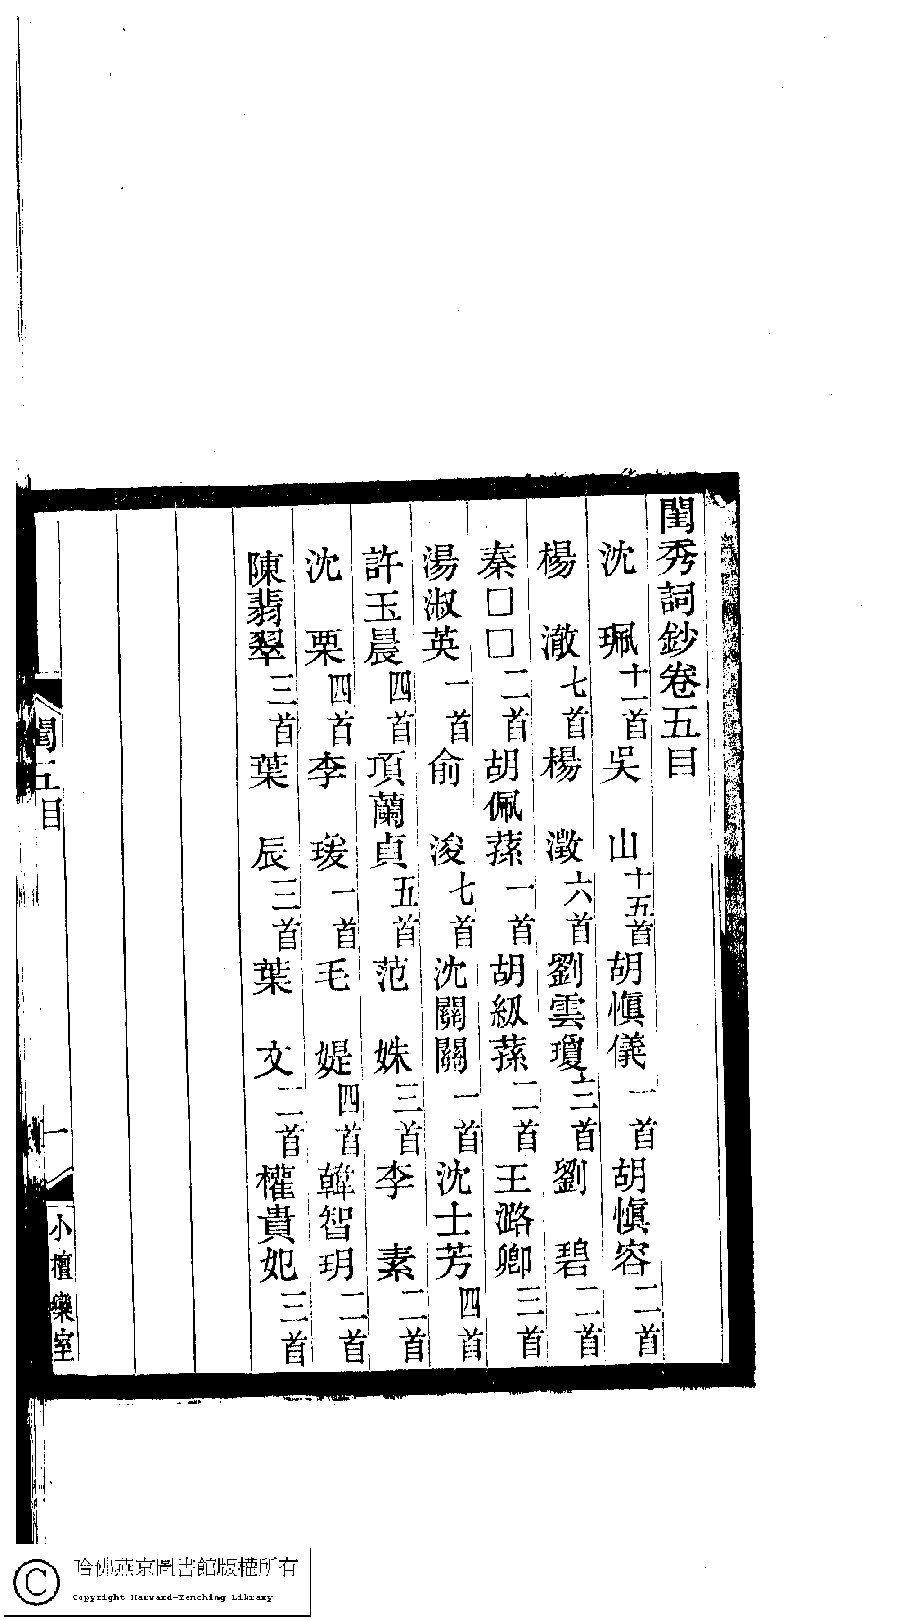 閨秀詞鈔卷五目
沈珮十一首吳山十五首胡愼儀一首胡愼容二首
楊澈七首楊澂六首劉雲瓊三首劉碧二首
秦□□二首胡佩蓀一首胡級蓀二首王潞卿三首
湯淑英一首俞浚七首沈關關一首沈士芳四首
許玉晨四首項蘭貞五首范姝三首李素二首
沈栗四首李瑗一首毛媞四首韓智玥二首
陳翡翠三首葉辰三首葉文二首權貴妃三首
閨五目
一
小檀欒室
哈佛燕京圖書館版權所有
Copyright Harvard-Yenching Library